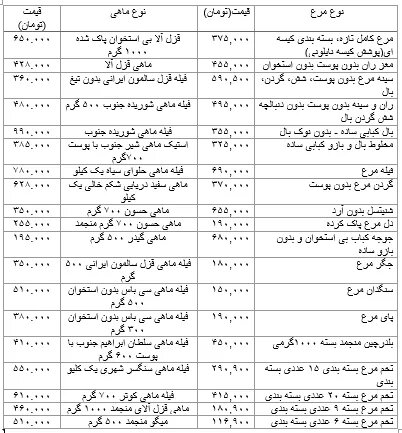 نوع مرغ	قیمت(تومان)	نوع ماهی	قیمت (تومان)
مرغ کامل تازه، بسته بندی کیسه ای(پوشش کیسه نایلونی)	۳۷۵,۰۰۰	قزل آلا بی استخوان پاک شده ۱۰۰۰ گرم	۶۵۰.۰۰۰
مغز ران بدون پوست بدون استخوان	۴۵۵,۰۰۰	ماهی قزل آلا	۴۲۸.۰۰۰
سینه مرغ بدون پوست، شش، گردن، بال	۵۹۰,۵۰۰	فیله قزل سالمون ایرانی بدون تیغ	۳۶۰.۰۰۰
ران و سینه بدون پوست بدون دنبالچه شش گردن بال	۴۹۵,۰۰۰	ماهی شوریده جنوب ۵۰۰ گرم	۴۸۰.۰۰۰
بال کبابی ساده - بدون نوک بال	۳۵۵,۰۰۰	فیله ماهی شوریده جنوب	۹۹۰.۰۰۰
مخلوط بال و بازو کبابی ساده	۳۲۵,۰۰۰	استیک ماهی شیر جنوب با پوست ۷۰۰گرم	۳۸۵.۰۰۰
فیله مرغ	۶۹۰,۰۰۰	فیله ماهی حلوای سیاه یک کیلو	۷۸۰.۰۰۰
گردن مرغ بدون پوست	۳۷۰,۰۰۰	ماهی سفید دریایی شکم خالی یک کیلو	۶۲۸.۰۰۰
شنیتسل بدون آرد	۶۵۵,۰۰۰	ماهی حسون ۷۰۰ گرم	۳۵۰.۰۰۰
دل مرغ پاک کرده	۱۹۰,۰۰۰	ماهی حسون ۷۰۰ گرم منجمد	۲۵۵.۰۰۰
جوجه کباب بی استخوان و بدون بازو ساده	۶۸۰,۰۰۰	ماهی گیدر ۵۰۰ گرم	۱۹۵.۰۰۰
جگر مرغ	۱۸۰,۰۰۰	فیله ماهی قزل سالمون ایرانی ۵۰۰ گرم	۳۵۰.۰۰۰
سنگدان مرغ	۱۵۰,۰۰۰	فیله ماهی سی باس بدون استخوان ۵۰۰ گرم	۵۱۰.۰۰۰
پای مرغ	۱۹۰,۰۰۰	فیله ماهی سی باس بدون استخوان ۳۰۰ گرم	۳۸۰.۰۰۰
بلدرچین منجمد بسته ۱۰۰۰گرمی	۴۵۰,۰۰۰	فیله ماهی سلطان ابراهیم جنوب با پوست ۶۰۰ گرم	۴۱۰.۰۰۰
تخم مرغ بسته بندی ۱۵ عددی بسته بندی	۲۹۰,۹۰۰	فیله ماهی سنگسر شهری یک کلیو	۵۵۰.۰۰۰
تخم مرغ ۲۰ عددی بسته بندی	۴۱۵,۰۰۰	فیله ماهی کوتر ۷۰۰ گرم	۶۱۰.۰۰۰
تخم مرغ ۹ عددی بسته بندی	۱۸۰,۹۰۰	ماهی قزل آلای منجمد ۱۰۰۰ گرم	۴۶۰.۰۰۰
تخم مرغ بسته ۶ عددی بسته بندی	۱۱۶,۹۰۰	میگو منجمد ۵۰۰ گرم	۵۱۰.۰۰۰